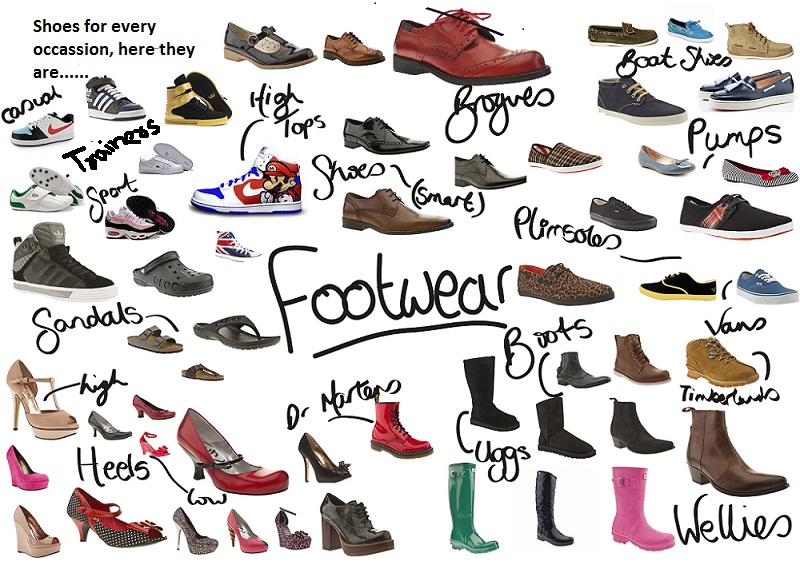 Shoes for every
occassion, here they
are......
Casual
Trainers
Sport
High
Tops
Brogues
Boat Shoes
Pumps
Shoes
(smart)
Plimsoles
Footwear
Sandals
Vans
Boots
Timberlands
high
Dr Martens
Uggs
Heels
Low
Wellies